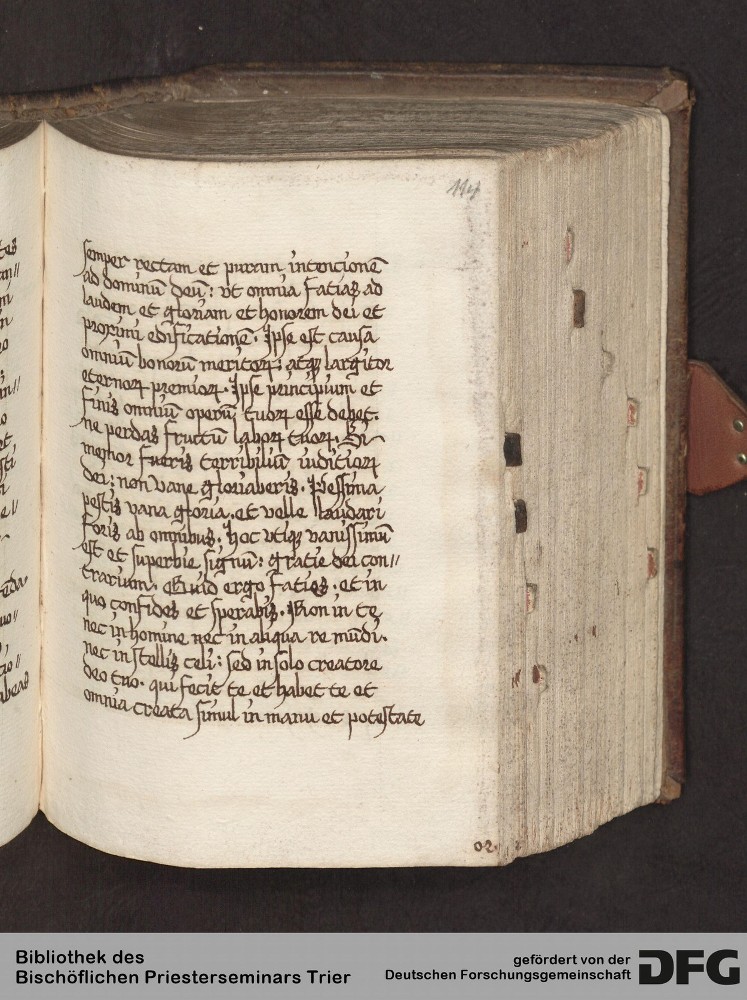 114
semper rectam et puram intencionē
ad dominū deū: vt omnia fatias ad
laudem et gloriam et honorem dei et
proximi edificationē. Ipse est causa
omniū bonorū meritoꝝ: atqꝫ largitor
eternoꝝ premioꝝ. Ipse principium et
finis omniū operū tuoꝝ esse debet.
ne perdas fructū laboꝝ tuoꝝ. Si
memor fueris terribiliū iuditioꝝ
dei: non vane gloriaberis. Pessima
pestis vana gloria. et velle laudari
foris ab omnibus. hoc vtiqꝫ vanissimū
est et superbie signū: gratie dei con//
trarium. Quid ergo faties, et in
quo confides et sperabis. Non in te
nec in homine nec in aliqua re mūdi.
nec in stellis celi: sed in solo creatore
deo tuo. qui fecit te et habet te et
omnia creata simul in manu et potestate
02.
Bibliothek des
Bischöflichen Priesterseminars Trier
gefördert von der
Deutschen Forschungsgemeinschaft
DFG